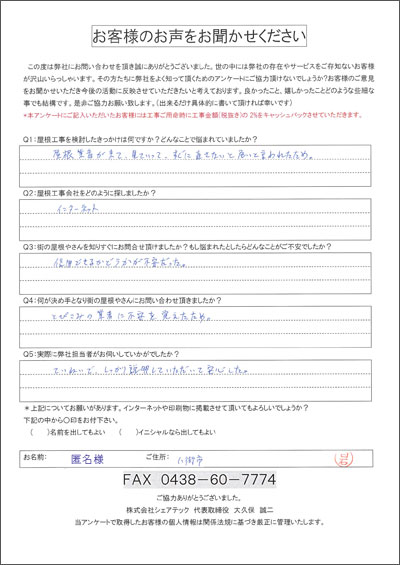 お客様のお声をお聞かせください
この度は弊社にお問い合わせを頂き誠にありがとうございました。世の中には弊社の存在やサービスをご存知ないお客様
が沢山いらっしゃいます。その方たちに弊社をよく知って頂くためのアンケートにご協力頂けないでしょうか?お客様のご意見
をお聞かせいただき今後の活動に反映させていただきたいと考えております。良かったこと、嬉しかったことどのような些細な
事でも結構です。是非ご協力お願い致します。(出来るだけ具体的に書いて頂ければ幸いです)
*本アンケートにご記入いただいたお客様には工事ご用命時に工事金額(税抜き)の2%をキャッシュバックさせていただきます。
Q1:屋根工事を検討したきっかけは何ですか?どんなことで悩まれていましたか?
屋根業者が来て、見ていって、すぐに直せたいと
言われたため。
Q2:屋根工事会社をどのように探しましたか?
インターネット
Q3:街の屋根やさんを知りすぐにお問合せ頂けましたか?もし悩まれたとしたらどんなことがご不安でしたか?
信用できるかどうかが不安だった。
Q4:何が決め手となり街の屋根やさんにお問い合わせ頂きましたか?
とびこみの業者に不安を覚えたため。
Q5:実際に弊社担当者がお伺いしていかがでしたか?
ていねいで、しっかり説明していただいて安心した。
*上記についてお願いがあります。インターネットや印刷物に掲載させて頂いてもよろしいでしょうか?
下記の中から〇印をお付下さい。
( )名前を出してもよい ( )イニシャルなら出してもよい
お名前: 匿名様 ご住所: 八街市
FAX 0438-60-7774
ご協力ありがとうございました。
株式会社シェアテック 代表取締役 大久保 誠二
当アンケートで取得したお客様の個人情報は関係法規に基づき厳正に管理いたします。